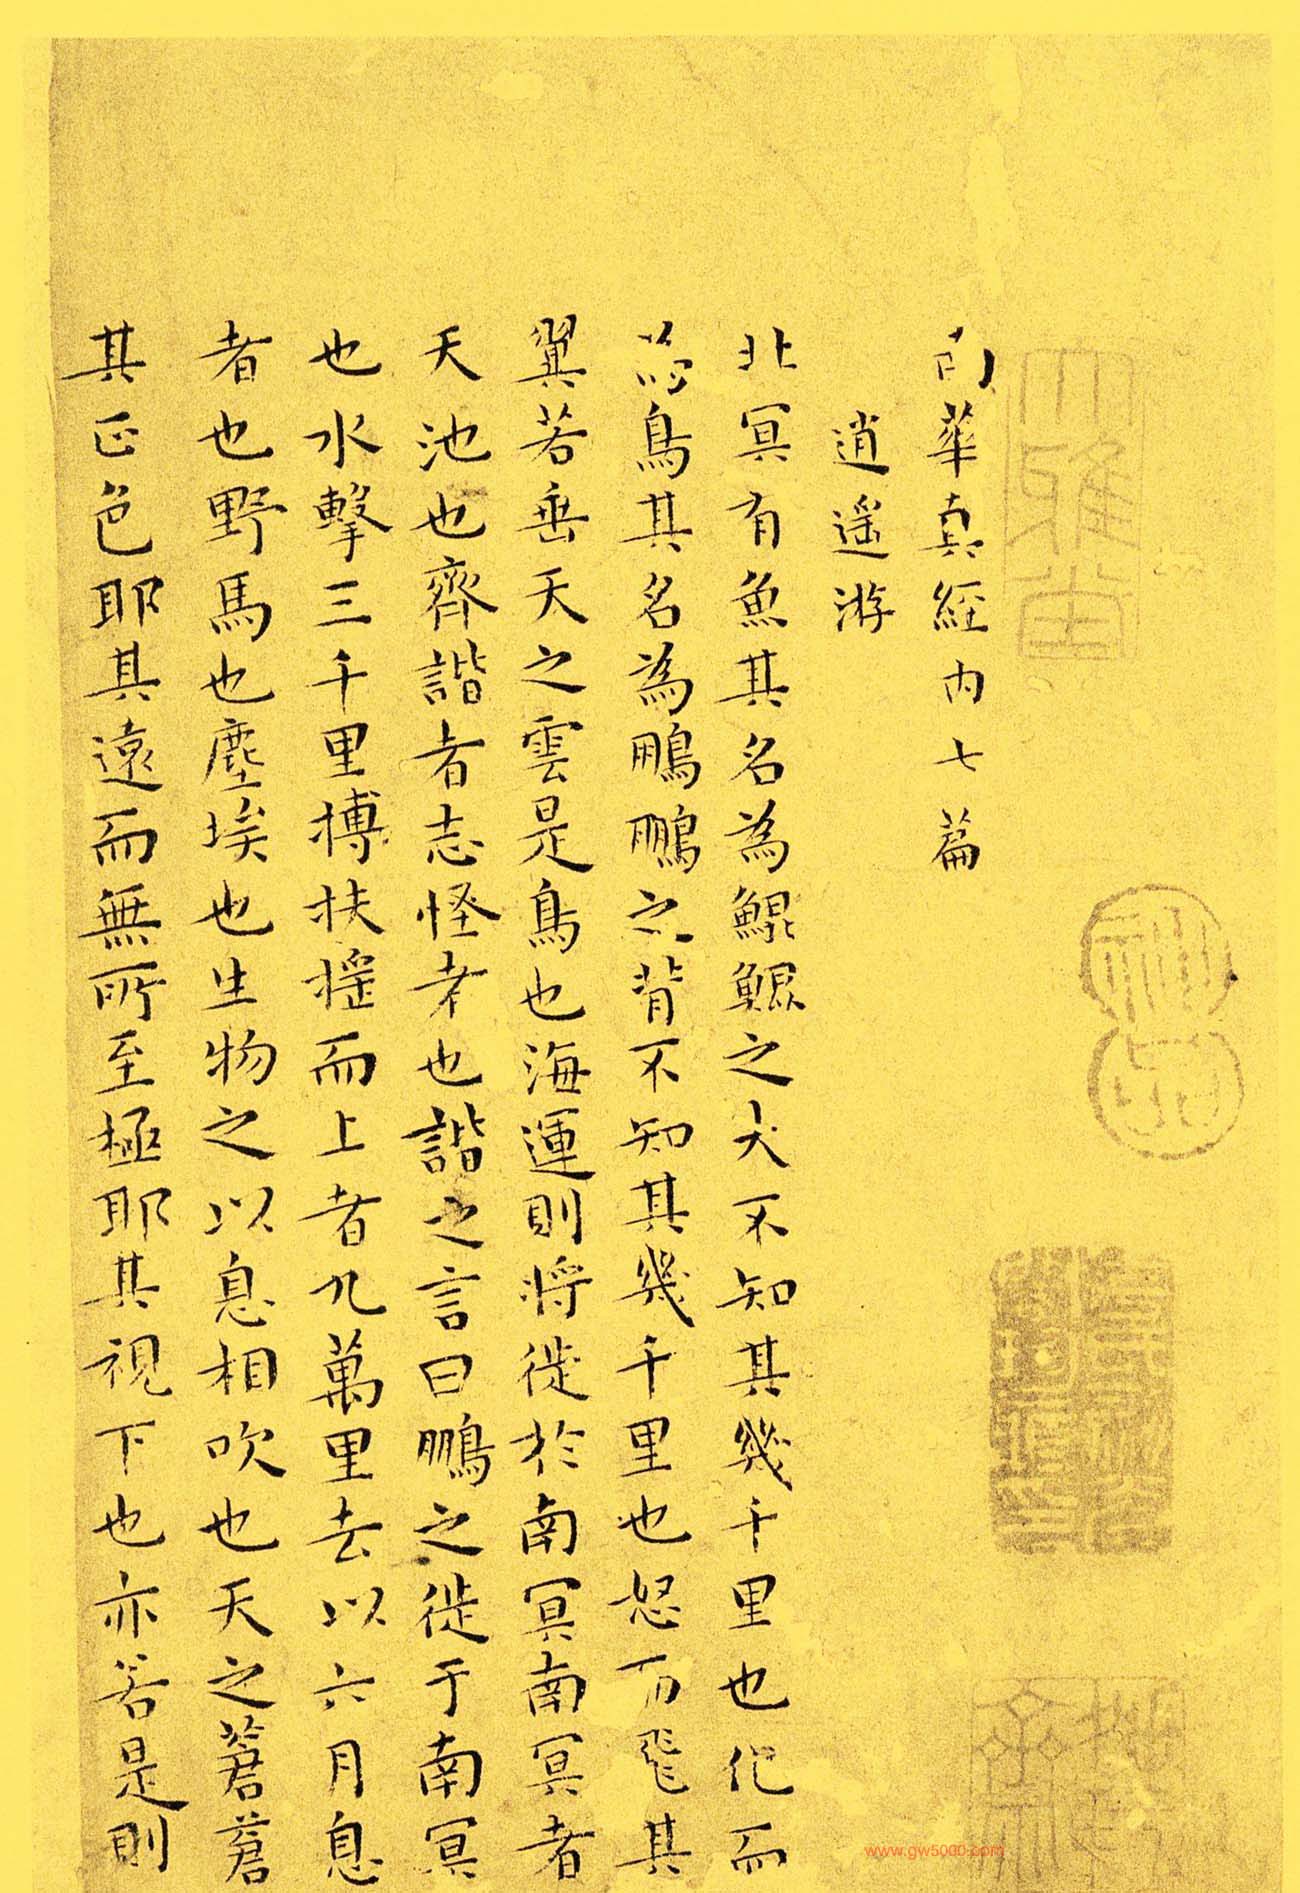 南華真經内七篇
逍遥游
北冥有魚其名為鯤鯤之大不知其幾千里也化而
為鳥其名為鵬鵬之背不知其幾千里也怒而飛其
翼若垂天之雲是鳥也海運則將徙於南冥南冥者
天池也齊諧者志怪者也諧之言曰鵬之徙于南冥
也水擊三千里搏扶搖而上者九萬里去以六月息
者也野馬也塵埃也生物之以息相吹也天之蒼蒼
其正色耶其遠而無所至極耶其視下也亦若是則
www.gw5000.com